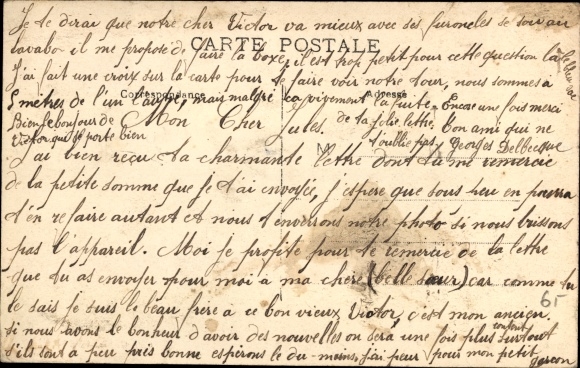 Je te dirai que notre cher Victor va mieux avec ses furoncles se soir au
lavabo il me propose de faire la boxe, il est trop petit pour cette question là
CARTE POSTALE
J'ai fait une croix sur la carte pour te faire voir notre tour, nous sommes à
5 mètres de l'un l'autre, mais malgré ça vivement la fuite. Encore une fois merci
Correspondance
Adresse
de ta jolie lettre. Ton ami qui ne
t'oublie pas, Georges Delbecque
Bien le bonjour de
Victor qui se porte bien
Mon Cher Jules.
M
J'ai bien reçu ta charmante lettre dont tu me remercie
de la petite somme que je t'ai envoyée, j'espere que sous peu en pourra
t'en refaire autant et nous t'enverrons notre photo si nous brissons
pas l'appareil. Moi je profite pour te remercie de la lettre
que tu as envoyer pour moi à ma chère (belle sœur) car comme tu
le sais je suis le beau frère a ce bon vieux Victor, c'est mon ancien.
65
si nous avons le bonheur d'avoir des nouvelles on sera une fois plus content surtout
s'ils sont a peu près bonne esperons le du moins, j'ai peur pour mon petit
garcon